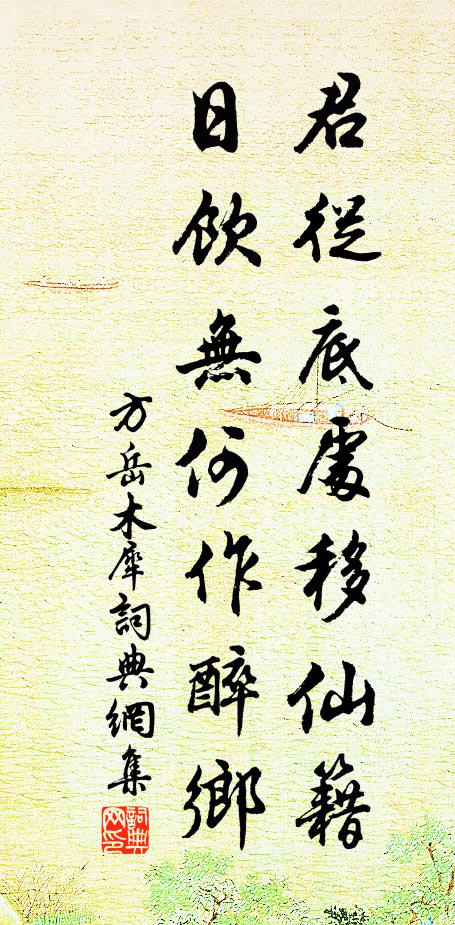 君從底處移仙籍
日飲無何作醉鄉
方岳木犀詞典網集
詞典網印